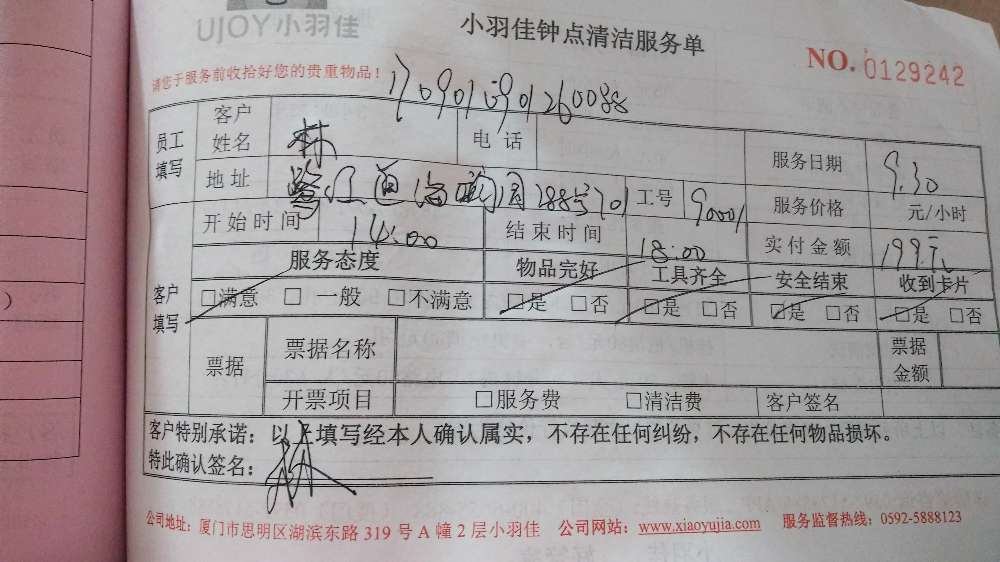 UJOY小羽佳
小羽佳钟点清洁服务单
NO. 0129242
请您于服务前收拾好您的贵重物品!
员工填写 客户姓名 林 电话 服务日期 9.30
地址 288号701 工号 90001 服务价格 元/小时
开始时间 14:00 结束时间 18:00 实付金额 199元
客户填写 服务态度 物品完好 工具齐全 安全结束 收到卡片
□满意 □一般 □不满意 □是 □否 □是 □否 □是 □否 □是 □否
票据 票据名称 票据金额
开票项目 □服务费 □清洁费 客户签名
客户特别承诺:以上填写经本人确认属实,不存在任何纠纷,不存在任何物品损坏。
特此确认签名: 林
公司地址:厦门市思明区湖滨东路 319 号 A 幢 2 层小羽佳 公司网站:www.xiaoyujia.com 服务监督热线:0592-5888123